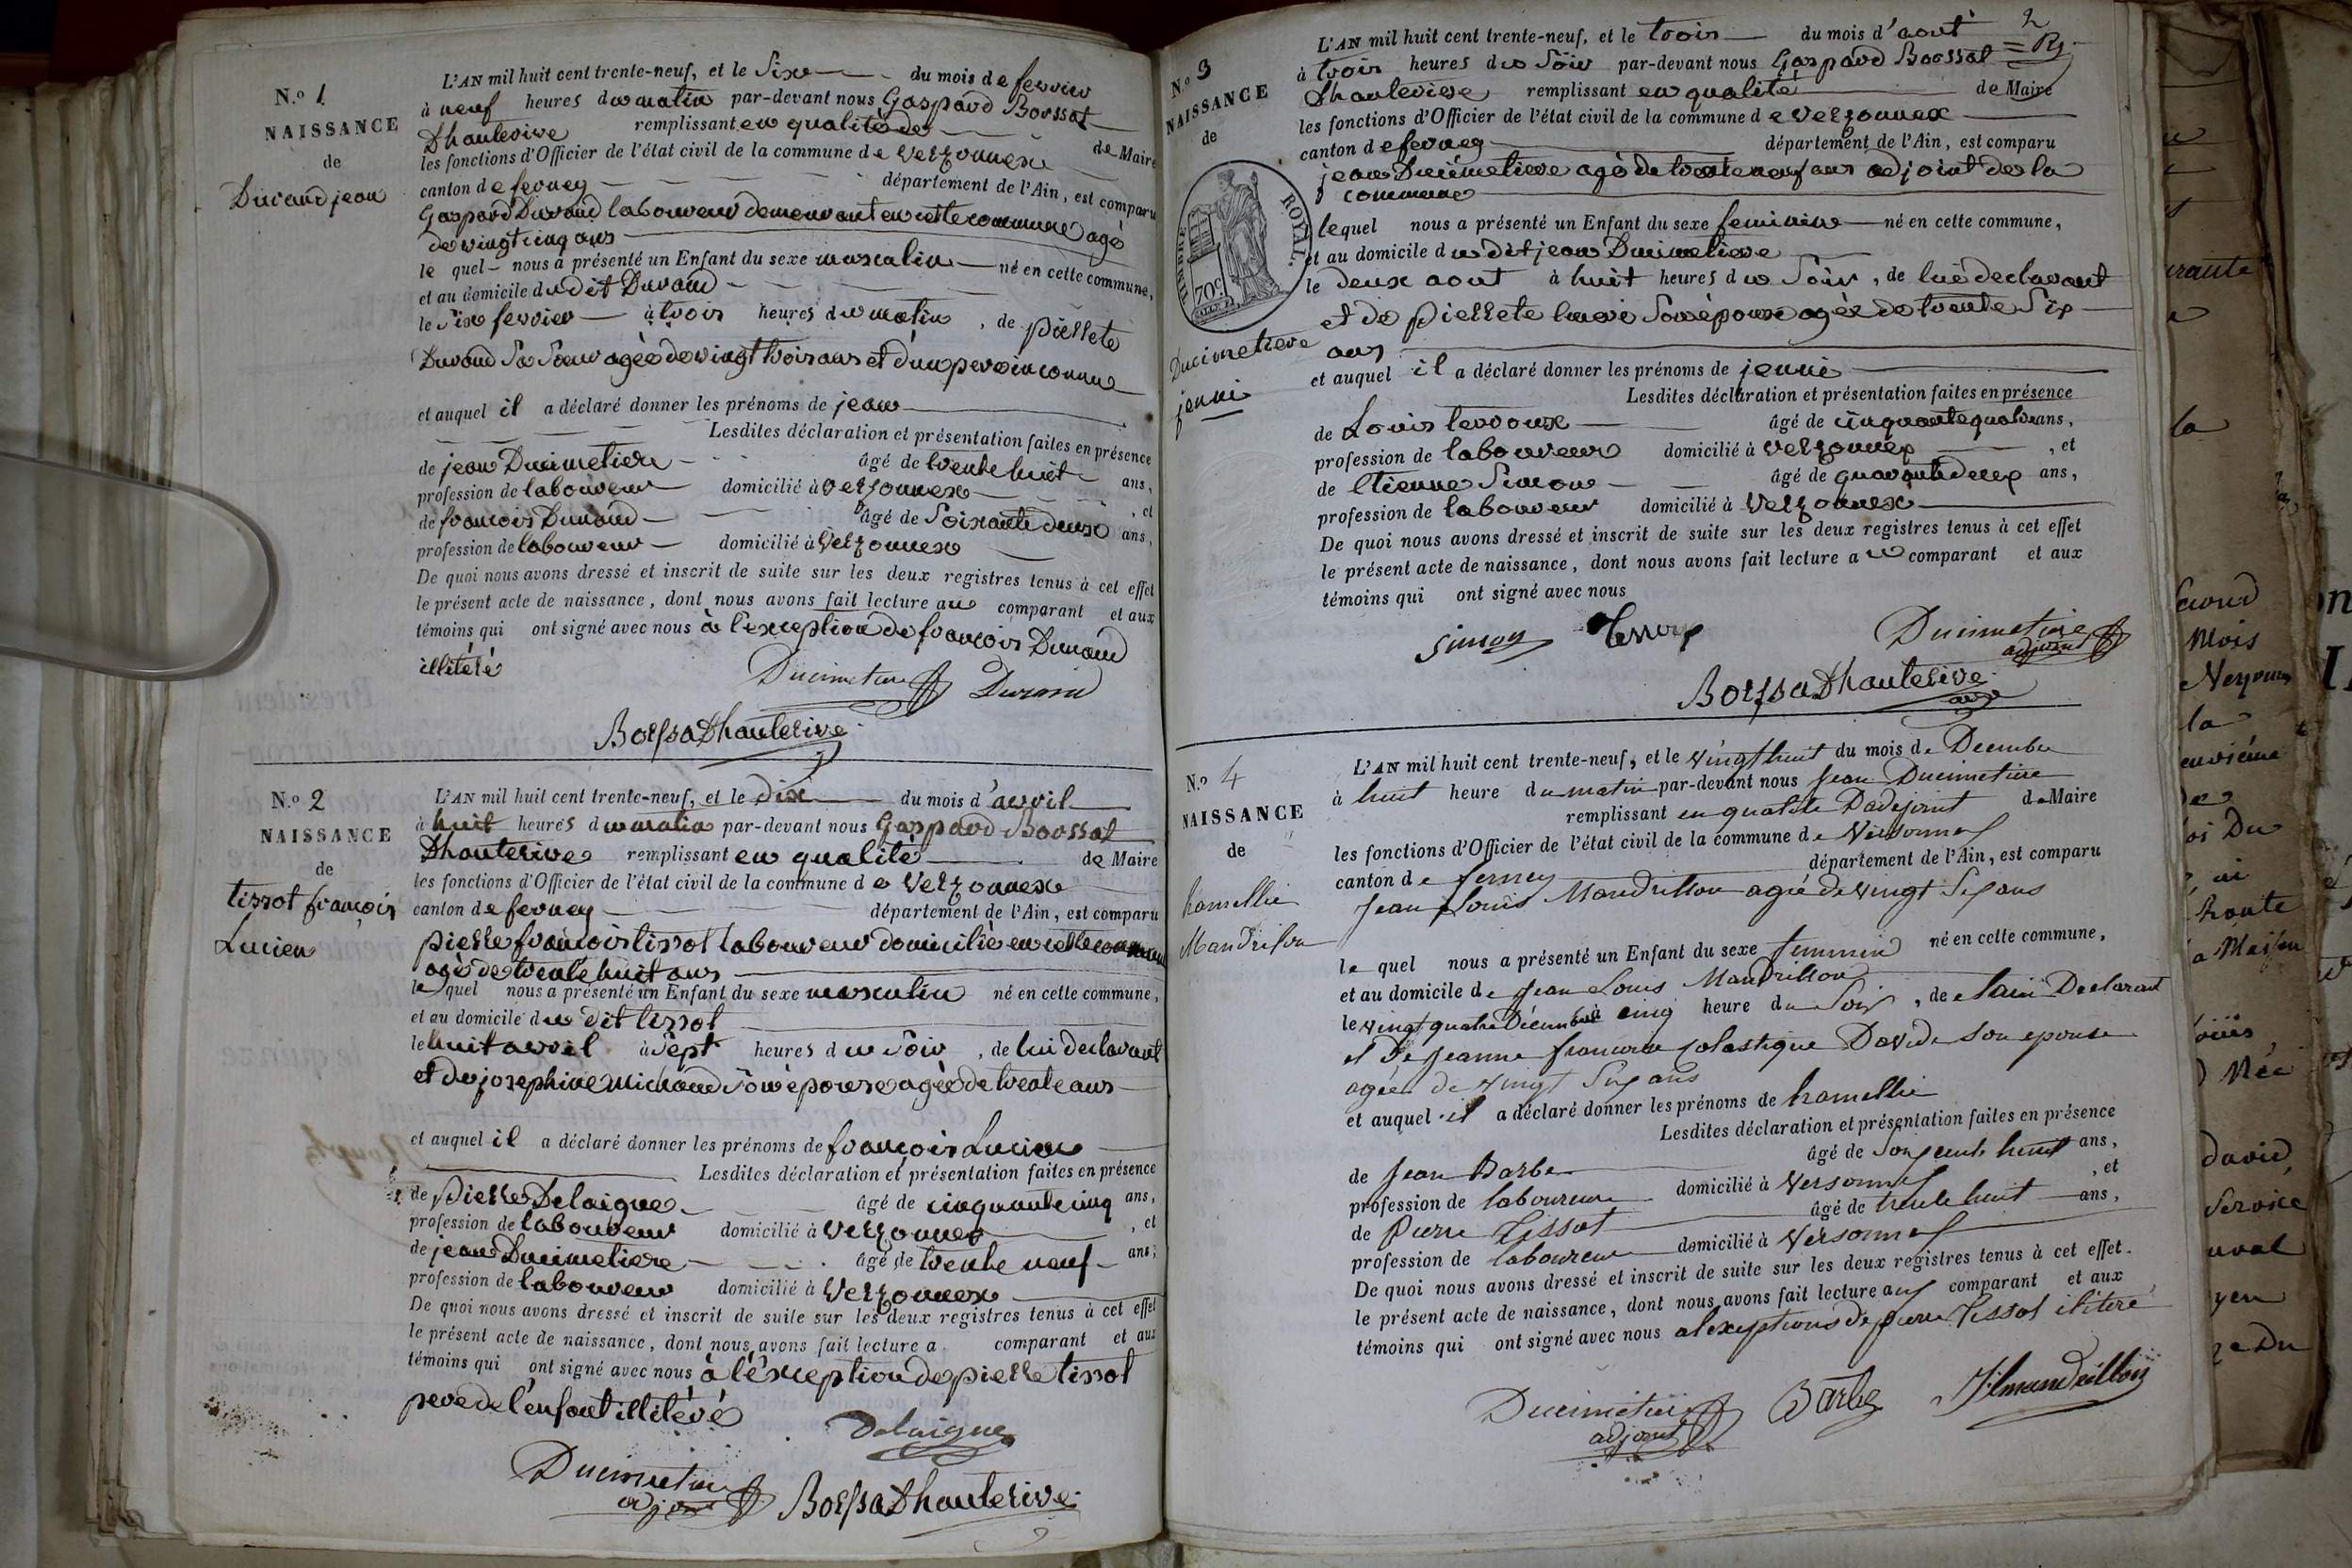 N.o 1
NAISSANCE
de
Durand jean
L'AN mil huit cent trente-neuf, et le Six du mois de fevrier
à neuf heures du matin par-devant nous Gaspard Borssat
Dhauterive remplissant en qualité de de Maire
les fonctions d'Officier de l'état civil de la commune de Verzonnex
canton de ferney département de l'Ain, est comparu
Gaspard Durand laboureur demeurant en cette commune agé
de vingt cinq ans
le quel nous a présenté un Enfant du sexe masculin né en cette commune,
et au domicile du dit Durand
le Six fevrier à trois heures du matin, de pierrete
Durand Sa Soeur agée de vingt trois ans et d'un pere inconnu
et auquel il a déclaré donner les prénoms de jean
Lesdites déclaration et présentation faites en présence
de jean Ducimetiere âgé de trente huit ans,
profession de laboureur domicilié à Verzonnex, et
de francois Durand âgé de Soixante deux ans,
profession de laboureur domicilié à Verzonnex
De quoi nous avons dressé et inscrit de suite sur les deux registres tenus à cet effet
le présent acte de naissance, dont nous avons fait lecture au comparant et aux
témoins qui ont signé avec nous à l'exception de francois Durand
illitéré
Ducimetiere Durand
Borssat Dhauterive
N.o 2
NAISSANCE
de
tissot françois
Lucien
L'AN mil huit cent trente-neuf, et le dix du mois d'avril
à huit heures du matin par-devant nous Gaspard Borssat
Dhauterive remplissant en qualité de Maire
les fonctions d'Officier de l'état civil de la commune de Verzonnex
canton de ferney département de l'Ain, est comparu
pierre françois tissot laboureur domicilié en cette commune
agé de trente huit ans
le quel nous a présenté un Enfant du sexe masculin né en cette commune,
et au domicile du dit tissot
le huit avril à Sept heures du Soir, de lui declarant
et de josephine Michaud Son épouse agée de trente ans
et auquel il a déclaré donner les prénoms de françois Lucien
Lesdites déclaration et présentation faites en présence
de pierre Delaigue âgé de cinquante cinq ans,
profession de laboureur domicilié à Verzonnex, et
de jean Ducimetiere âgé de trente neuf ans;
profession de laboureur domicilié à Verzonnex
De quoi nous avons dressé et inscrit de suite sur les deux registres tenus à cet effet
le présent acte de naissance, dont nous avons fait lecture a comparant et aux
témoins qui ont signé avec nous à l'exception de pierre tissot
pere de l'enfant illitéré
Delaigue
Ducimetiere
adjoint Borssat Dhauterive
2
N.o 3
NAISSANCE
de
TIMBRE ROYAL.
70c
Ducimetiere
jenni
L'AN mil huit cent trente-neuf, et le trois du mois d'aout
à trois heures du Soir par-devant nous Gaspard Borssat
Dhauterive remplissant en qualité de Maire
les fonctions d'Officier de l'état civil de la commune de Verzonnex
canton de ferney département de l'Ain, est comparu
jean Ducimetiere agé de trente neuf ans adjoint de la
commune
lequel nous a présenté un Enfant du sexe feminin né en cette commune,
et au domicile du dit jean Ducimetiere
le deux aout à huit heures du Soir, de lui declarant
et de pierrete Son épouse agée de trente Six
ans
et auquel il a déclaré donner les prénoms de jenni
Lesdites déclaration et présentation faites en présence
de Louis âgé de cinquante quatre ans,
profession de laboureur domicilié à Verzonnex, et
de Etienne Simon âgé de quarante deux ans,
profession de laboureur domicilié à Verzonnex
De quoi nous avons dressé et inscrit de suite sur les deux registres tenus à cet effet
le présent acte de naissance, dont nous avons fait lecture au comparant et aux
témoins qui ont signé avec nous
Simon Ducimetiere
adjoint
Borssat Dhauterive
N.o 4
NAISSANCE
de
hamellie
Mandrillon
L'AN mil huit cent trente-neuf, et le vingt huit du mois de Decembre
à huit heure du matin par-devant nous Jean Ducimetiere
remplissant en qualité Dadejoint de Maire
les fonctions d'Officier de l'état civil de la commune de Versonnex
canton de ferney département de l'Ain, est comparu
Jean Louis Mandrillon agé de vingt Six ans
le quel nous a présenté un Enfant du sexe feminin né en cette commune,
et au domicile de Jean Louis Mandrillon
le vingt quatre Décembre à cinq heure du Soir, de Declarant
et de Jeanne francoise Colastique David Son epouse
agée de vingt Six ans
et auquel il a déclaré donner les prénoms de hamellie
Lesdites déclaration et présentation faites en présence
de Jean Barbe âgé de Soixante huit ans,
profession de laboureur domicilié à Versonnex, et
de Pierre Tissot âgé de trente huit ans,
profession de laboureur domicilié à Versonnex
De quoi nous avons dressé et inscrit de suite sur les deux registres tenus à cet effet.
le présent acte de naissance, dont nous avons fait lecture aux comparant et aux
témoins qui ont signé avec nous alexeptions de pierre Tissot ilitéré
Ducimetiere
adjoint Barbe Jlmandrillon